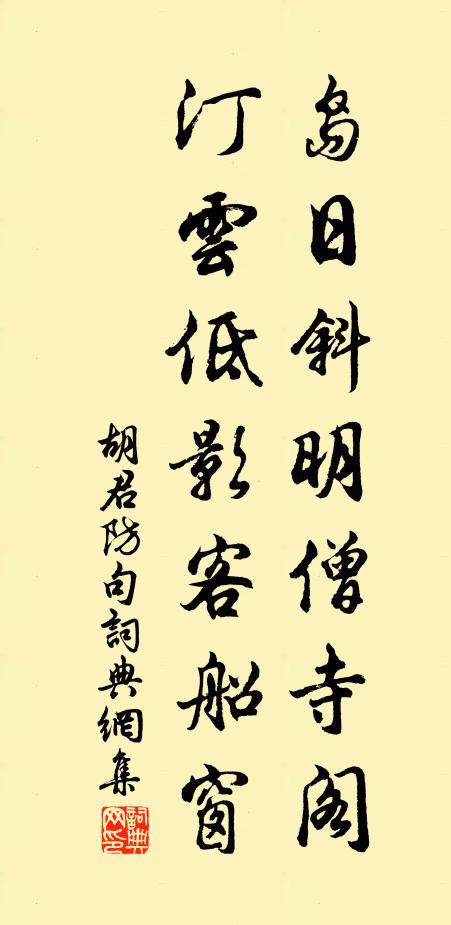 岛日斜明僧寺阁
汀雲低影客船窗
胡君防句詞典網集
詞典網印